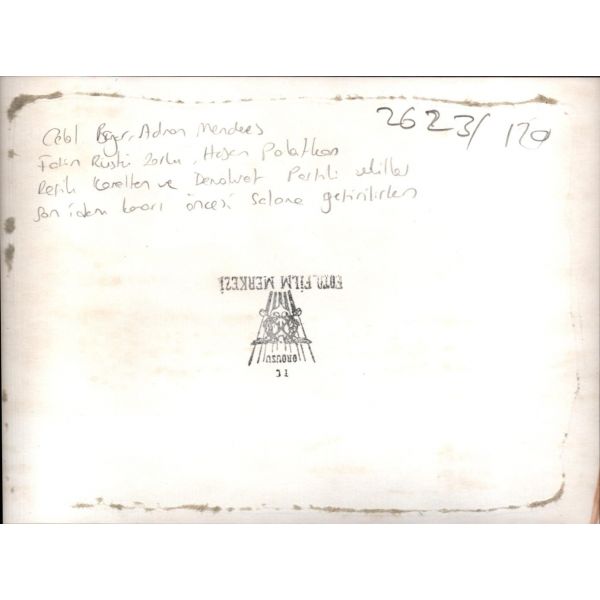 Celal Bayar, Adnan Menderes
2623/120
Fatin Rüştü Zorlu, Hasan Polatkan
Refik Koraltan ve Demokrat Partili vekiller
son idam kararı öncesi salona getirilirken
FOTO FİLM MERKEZİ
ORDUSU
T C